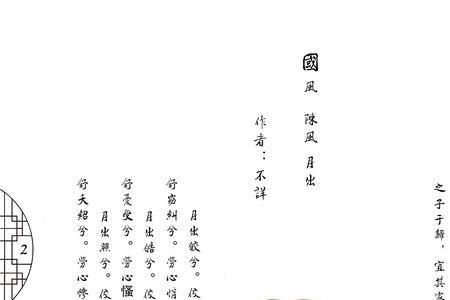 之子于歸，宜其家
國風 陳風 月出
作者：不詳
月出皎兮。佼
舒窈糾兮。勞心悄
月出皓兮。佼
舒憂受兮。勞心慅
月出照兮。佼
舒夭紹兮。勞心慘
2